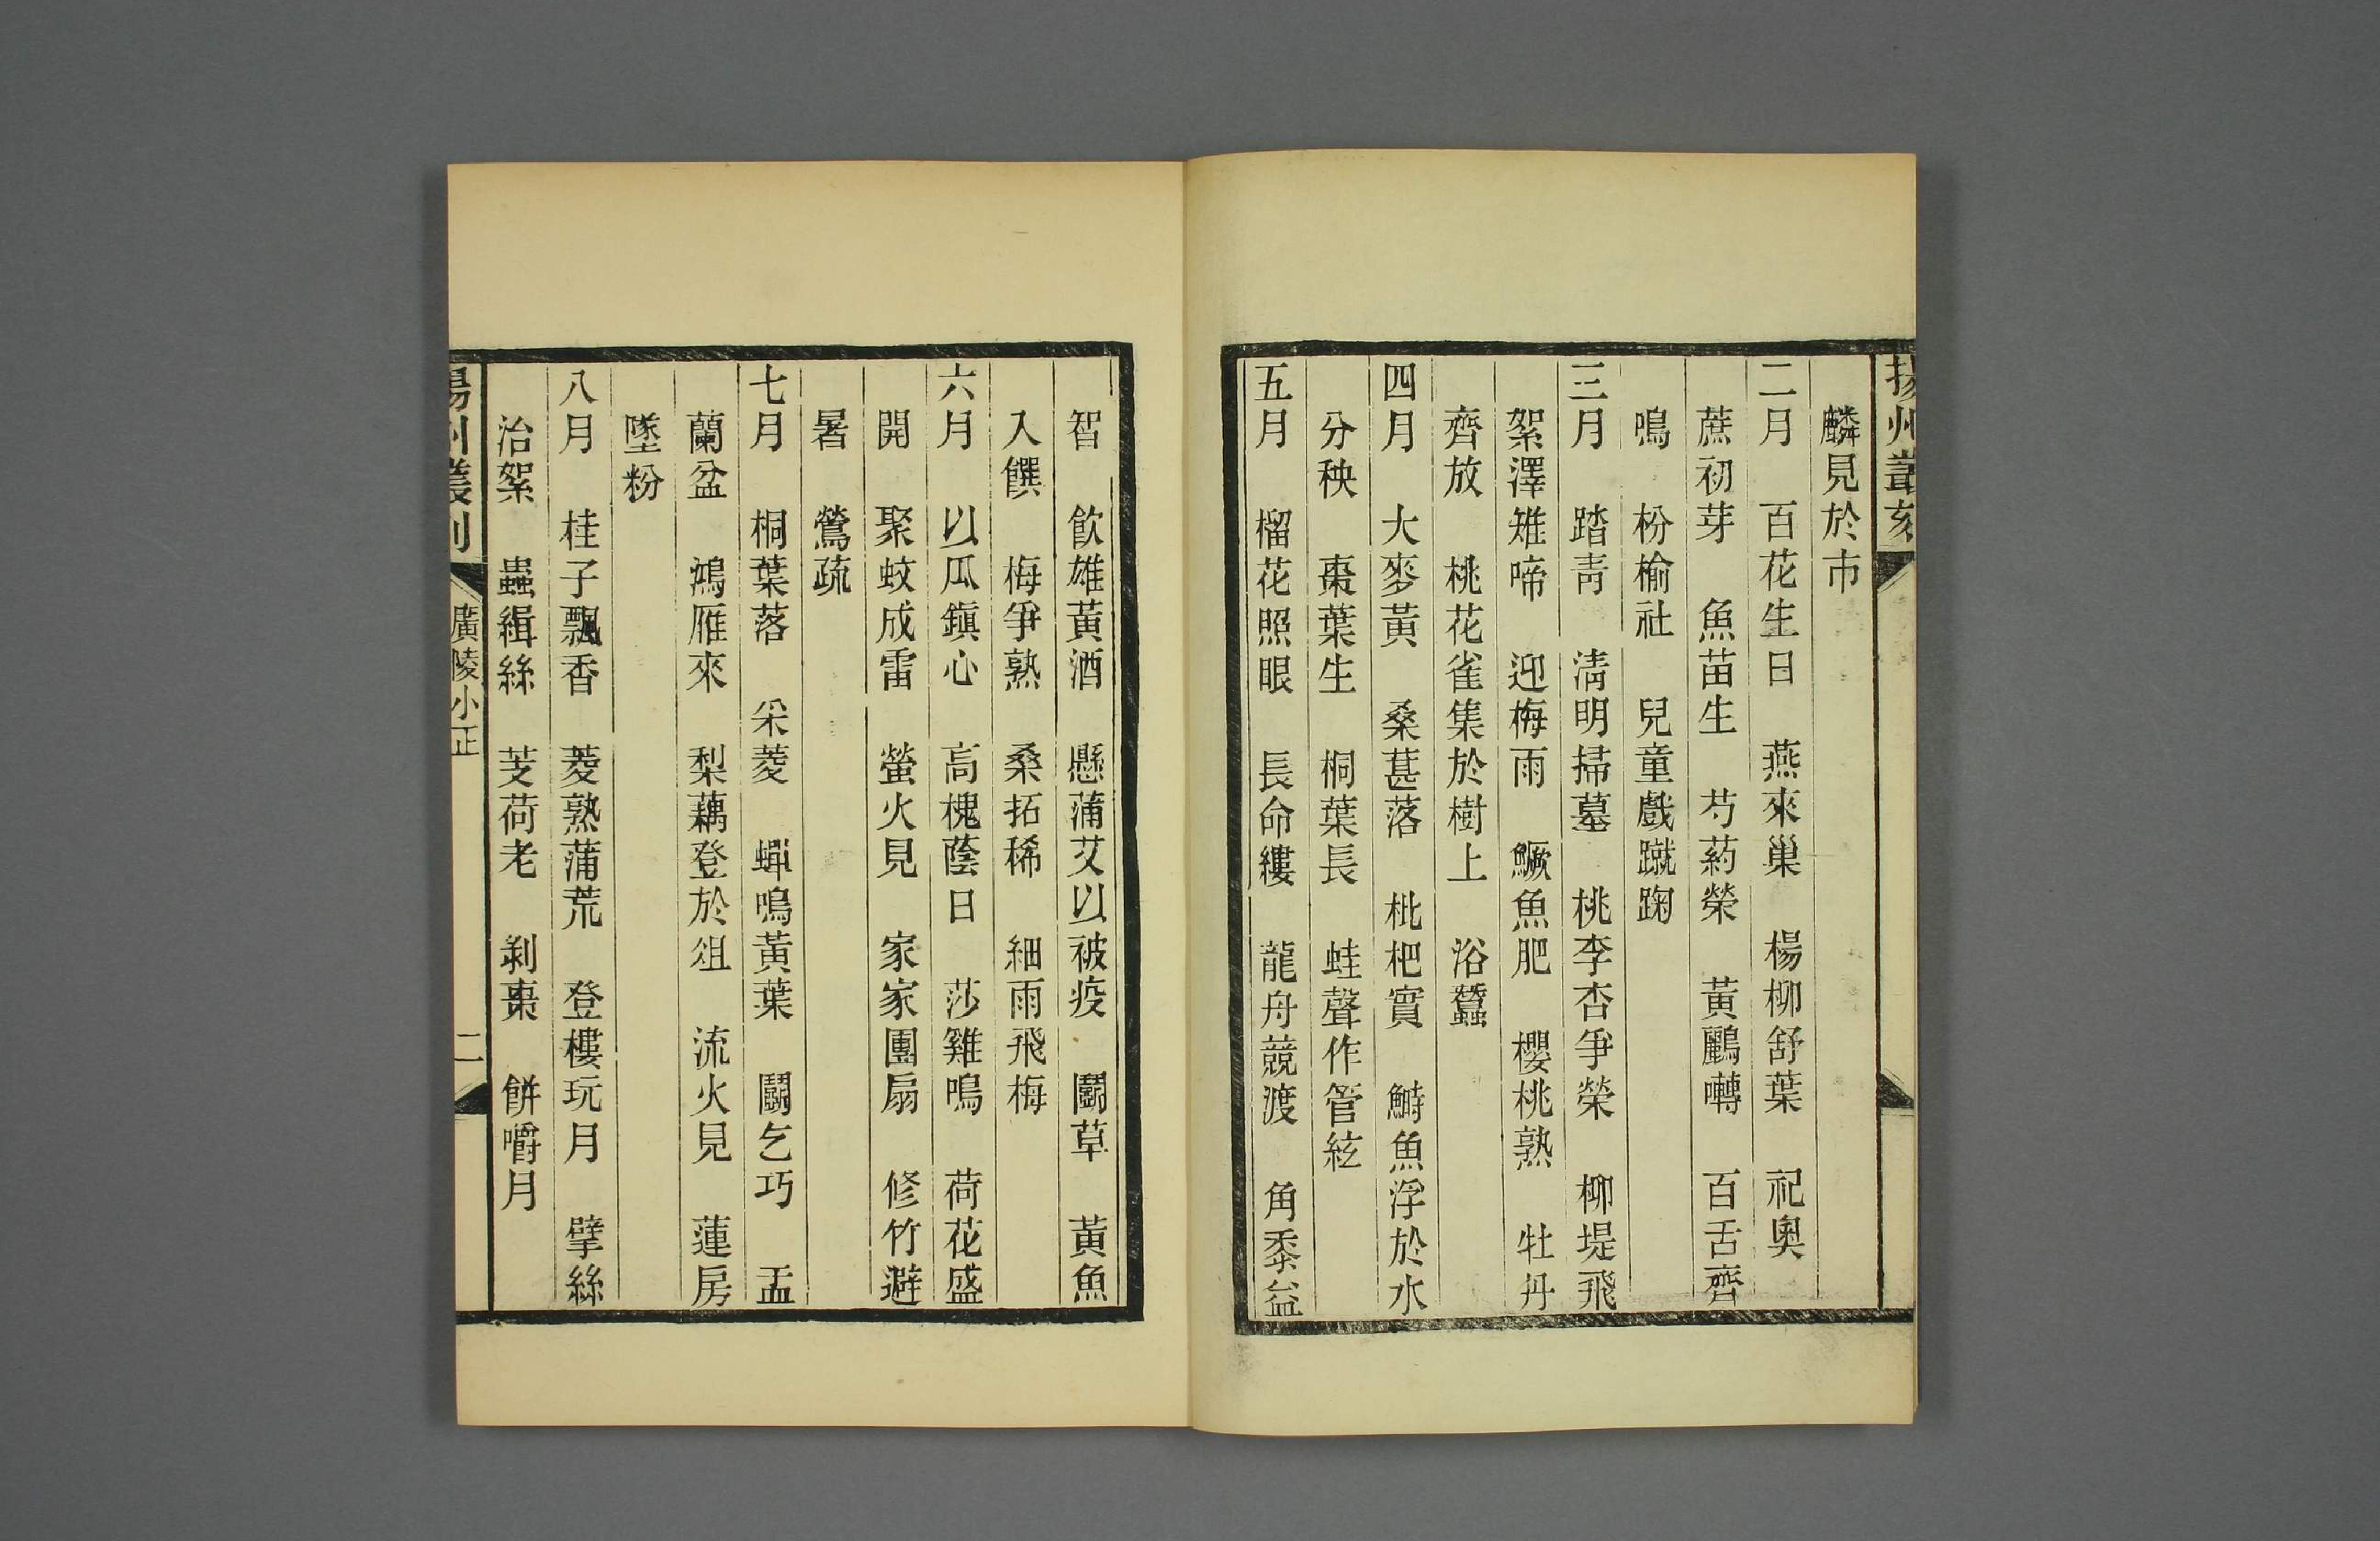 揚州叢刻
麟見於市
二月　百花生日　燕來巢　楊柳舒葉　祀奧
蔗初芽　魚苗生　芍葯榮　黃鸝囀　百舌齊
鳴　枌榆社　兒童戲蹴踘
三月　踏靑　淸明掃墓　桃李杏爭榮　柳堤飛
絮澤雉啼　迎梅雨　鱖魚肥　櫻桃熟　牡丹
齊放　桃花雀集於樹上　浴蠶
四月　大麥黃　桑葚落　枇杷實　鰣魚浮於水
分秧　棗葉生　桐葉長　蛙聲作管絃
五月　榴花照眼　長命縷　龍舟競渡　角黍益
智　飮雄黃酒　懸蒲艾以祓疫　鬭草　黃魚
入饌　梅爭熟　桑拓稀　細雨飛梅
六月　以瓜鎭心　高槐蔭日　莎雞鳴　荷花盛
開　聚蚊成雷　螢火見　家家團扇　修竹避
暑　鶯疏
七月　桐葉落　采菱　蟬鳴黃葉　鬭乞巧　盂
蘭盆　鴻雁來　梨藕登於俎　流火見　蓮房
墜粉
八月　桂子飄香　菱熟蒲荒　登樓玩月　擘絲
治絮　蟲緝絲　芰荷老　剝棗　餠嚼月
揚州叢刻
廣陵小正
二